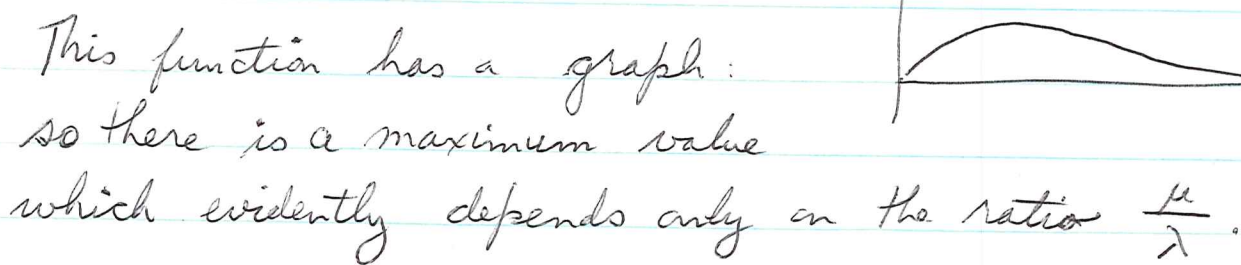 This function has a graph:
so there is a maximum value
which evidently depends only on the ratio μ/λ.